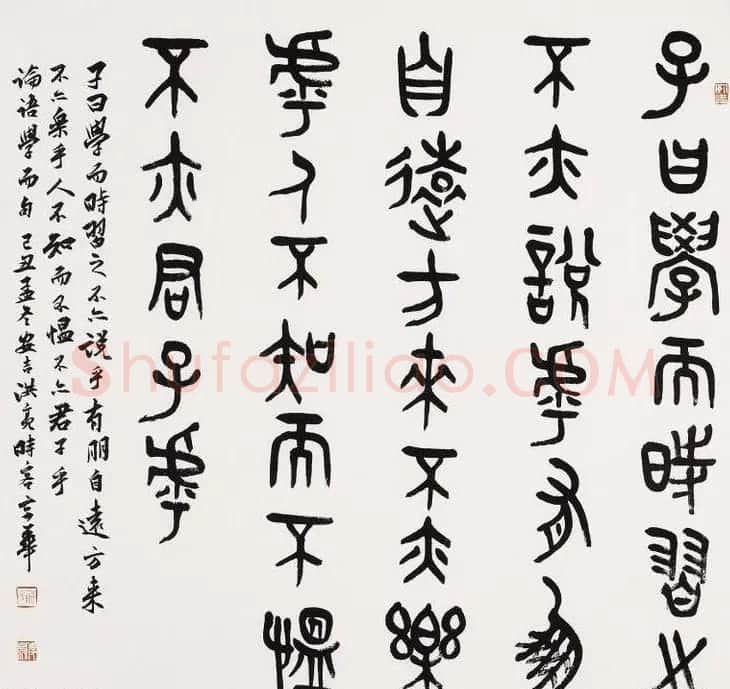 子曰學而時習之
不亦說乎有朋
自遠方來不亦樂
乎人不知而不慍
不亦君子乎
子曰學而時習之不亦説乎有朋自遠方来
不亦樂乎人不知而不愠不亦君子乎
論語學而句己丑孟冬安吉洪亮時客京華
Shufaziliao.COM